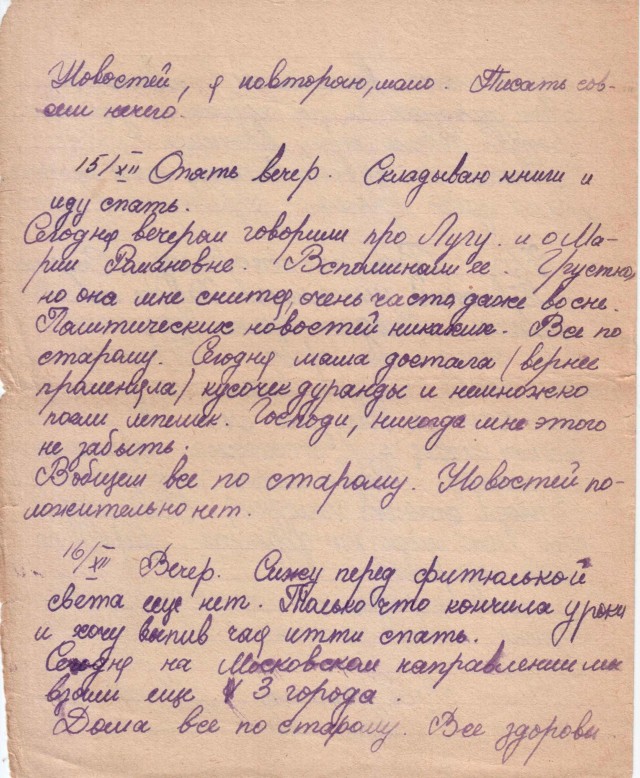 Новостей, я повторяю, мало. Писать сов-
сем нечего.
15/XII Опять вечер. Складываю книги и
иду спать.
Сегодня вечером говорили про Лугу и о Ма-
рии Романовне. Вспоминали ее. Грустно,
но она мне снится, очень часто даже во сне.
Политических новостей никаких. Все по
старому. Сегодня мама достала (вернее
променяла) кусочек дуранды и немножко
поели лепешек. Господи, никогда мне этого
не забыть.
Вобщем все по старому. Новостей по-
ложительно нет.
16/XII Вечер. Сижу перед фитюлькой
света еще нет. Только что кончила уроки
и хочу выпив чая итти спать.
Сегодня на Московском направлении мы
взяли еще 3 города.
Дома все по старому. Все здоровы.